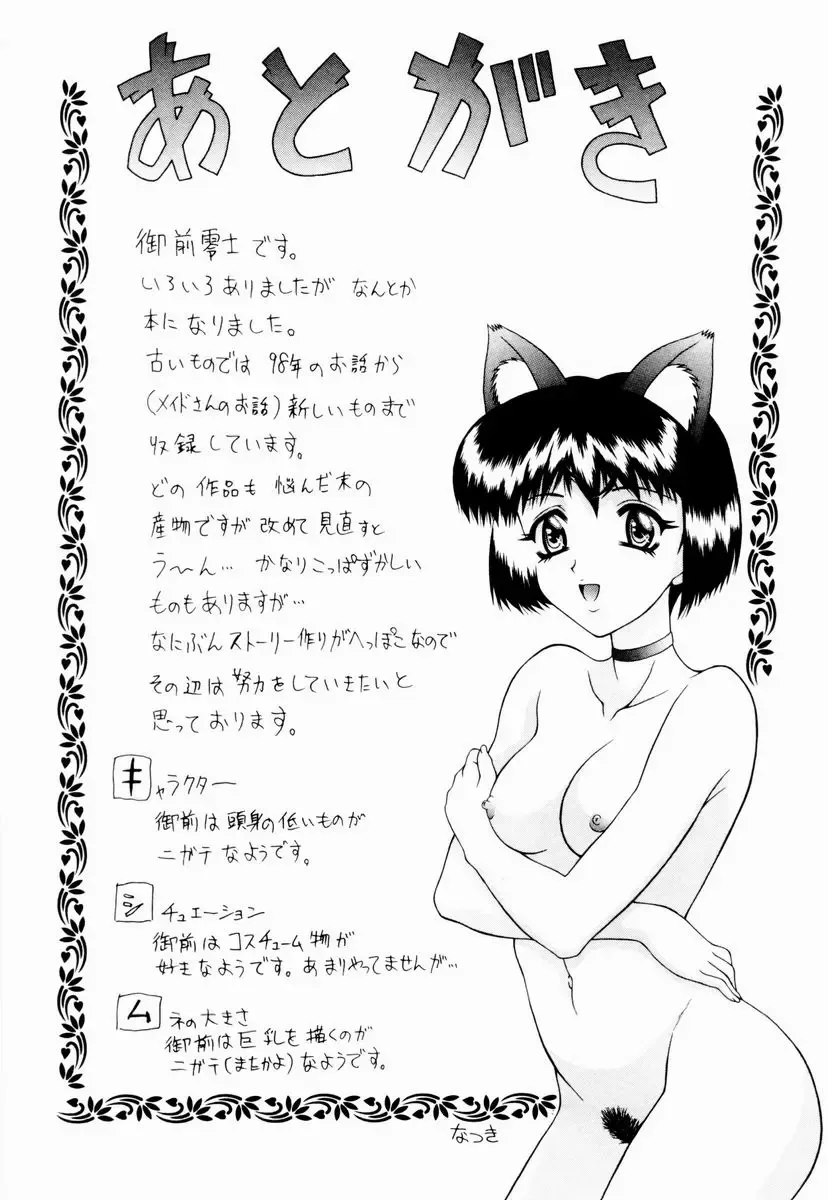 あとがき
御前零士です。
いろいろありましたが なんとか
本になりました。
古いものでは 98年のお話から
(メイドさんのお話)新しいものまで
収録しています。
どの作品も 悩んだ末の
産物ですが 改めて見直すと
う〜ん… かなりこっぱずかしい
ものもありますが…
なにぶんストーリー作りがへっぽこなので
その辺は努力をしていきたいと
思っております。
キャラクター
御前は頭身の低いものが
ニガテなようです。
シチュエーション
御前はコスチューム物が
好きなようです。あまりやってませんが…
ムネの大きさ
御前は巨乳を描くのが
ニガテ(またかよ)なようです。
なつき